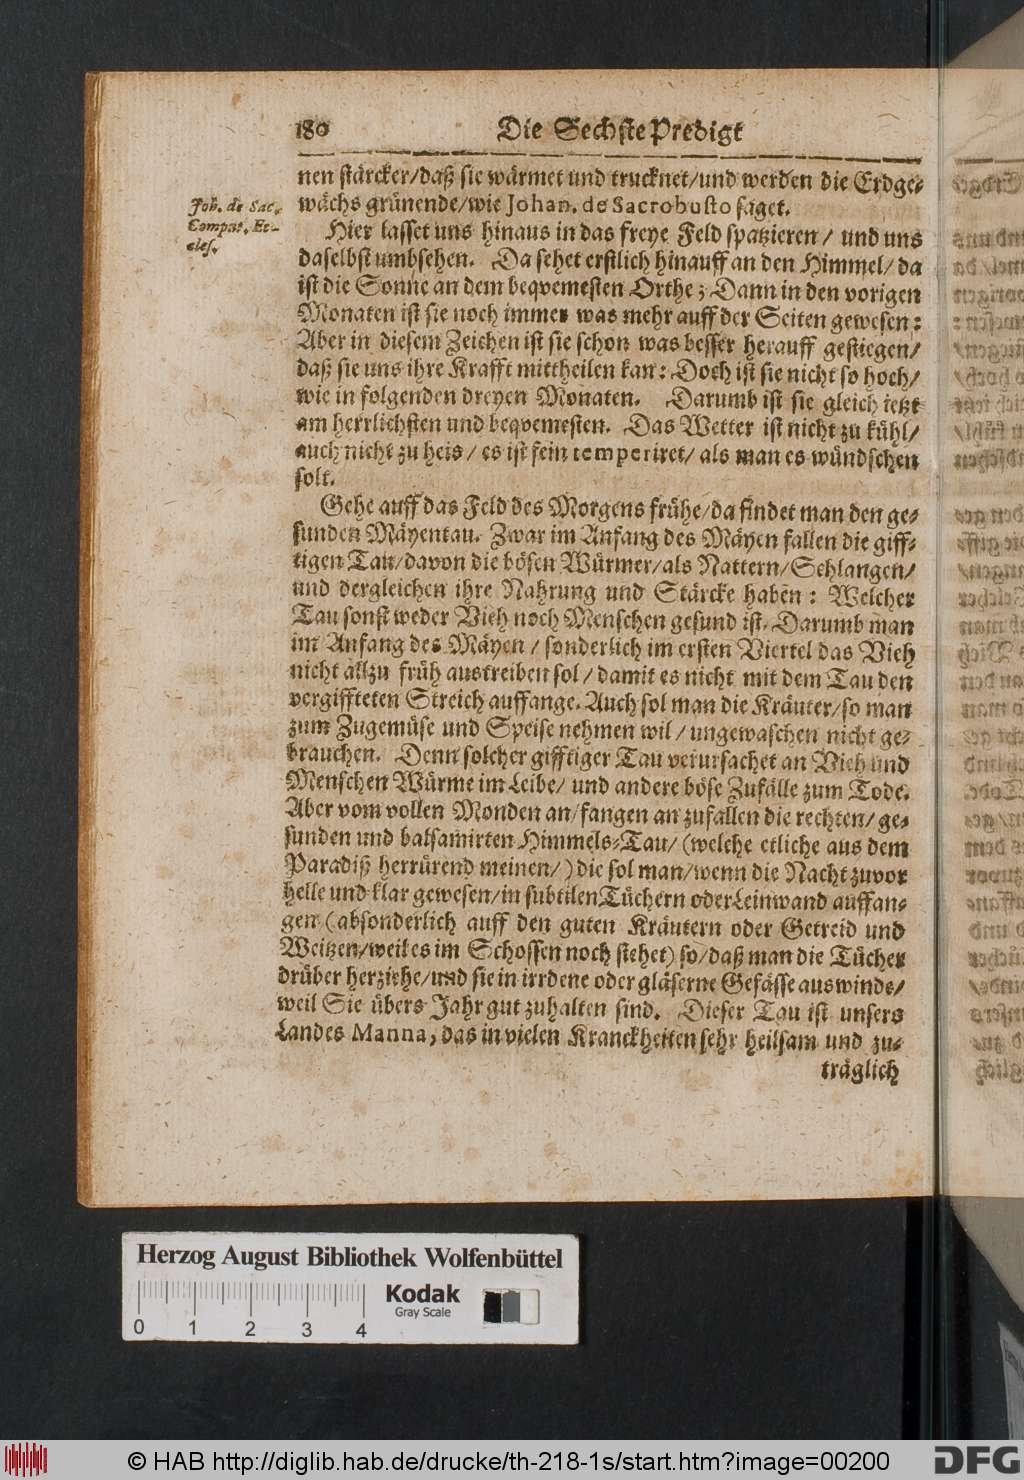 180 Die Sechste Predigt
nen stärcker/daß sie wärmet und trucknet/und werden die Erdge-
wächs grünende/wie Johan. de Sacrobusto saget.
Joh. de Sac.
Comput. Ec-
cles.
Hier lasset uns hinaus in das freye Feld spatzieren/ und uns
daselbst umbsehen. Da sehet erstlich hinauff an den Himmel/ da
ist die Sonne an dem beqvemesten Orthe; Dann in den vorigen
Monaten ist sie noch immer was mehr auff der Seiten gewesen:
Aber in diesem Zeichen ist sie schon was besser herauff gestiegen/
daß sie uns ihre Krafft mittheilen kan: Doch ist sie nicht so hoch/
wie in folgenden dreyen Monaten. Darumb ist sie gleich ietzt
am herrlichsten und beqvemesten. Das Wetter ist nicht zu kühl/
auch nicht zu heis/ es ist fein temperiret/ als man es wündschen
solt.
Gehe auff das Feld des Morgens frühe/da findet man den ge-
sunden Mäyentau. Zwar im Anfang des Mäyen fallen die giff-
tigen Tau/davon die bösen Würmer/als Nattern/Schlangen/
und dergleichen ihre Nahrung und Stärcke haben: Welcher
Tau sonst weder Vieh noch Menschen gesund ist. Darumb man
im Anfang des Mäyen/ sonderlich im ersten Viertel das Vieh
nicht allzu früh austreiben sol/ damit es nicht mit dem Tau den
vergiffteten Streich auffange. Auch sol man die Kräuter/so man
zum Zugemüse und Speise nehmen wil/ ungewaschen nicht ge-
brauchen. Denn solcher gifftiger Tau verursachet an Vieh und
Menschen Würme im Leibe/ und andere böse Zufälle zum Tode.
Aber vom vollen Monden an/fangen an zufallen die rechten/ ge-
sunden und balsamirten Himmels-Tau/ (welche etliche aus dem
Paradiß herrürend meinen/) die sol man/wenn die Nacht zuvor
helle und klar gewesen/in subtilen Tüchern oder Leinwand auffan-
gen (absonderlich auff den guten Kräutern oder Getreid und
Weitzen/weil es im Schossen noch stehet) so/daß man die Tücher
drüber herziehe/und sie in irrdene oder gläserne Gefässe auswinde/
weil Sie übers Jahr gut zuhalten sind. Dieser Tau ist unsers
Landes Manna, das in vielen Kranckheiten sehr heilsam und zu-
träglich
Herzog August Bibliothek Wolfenbüttel
Kodak
Gray Scale
0 1 2 3 4
© HAB http://diglib.hab.de/drucke/th-218-1s/start.htm?image=00200
DFG